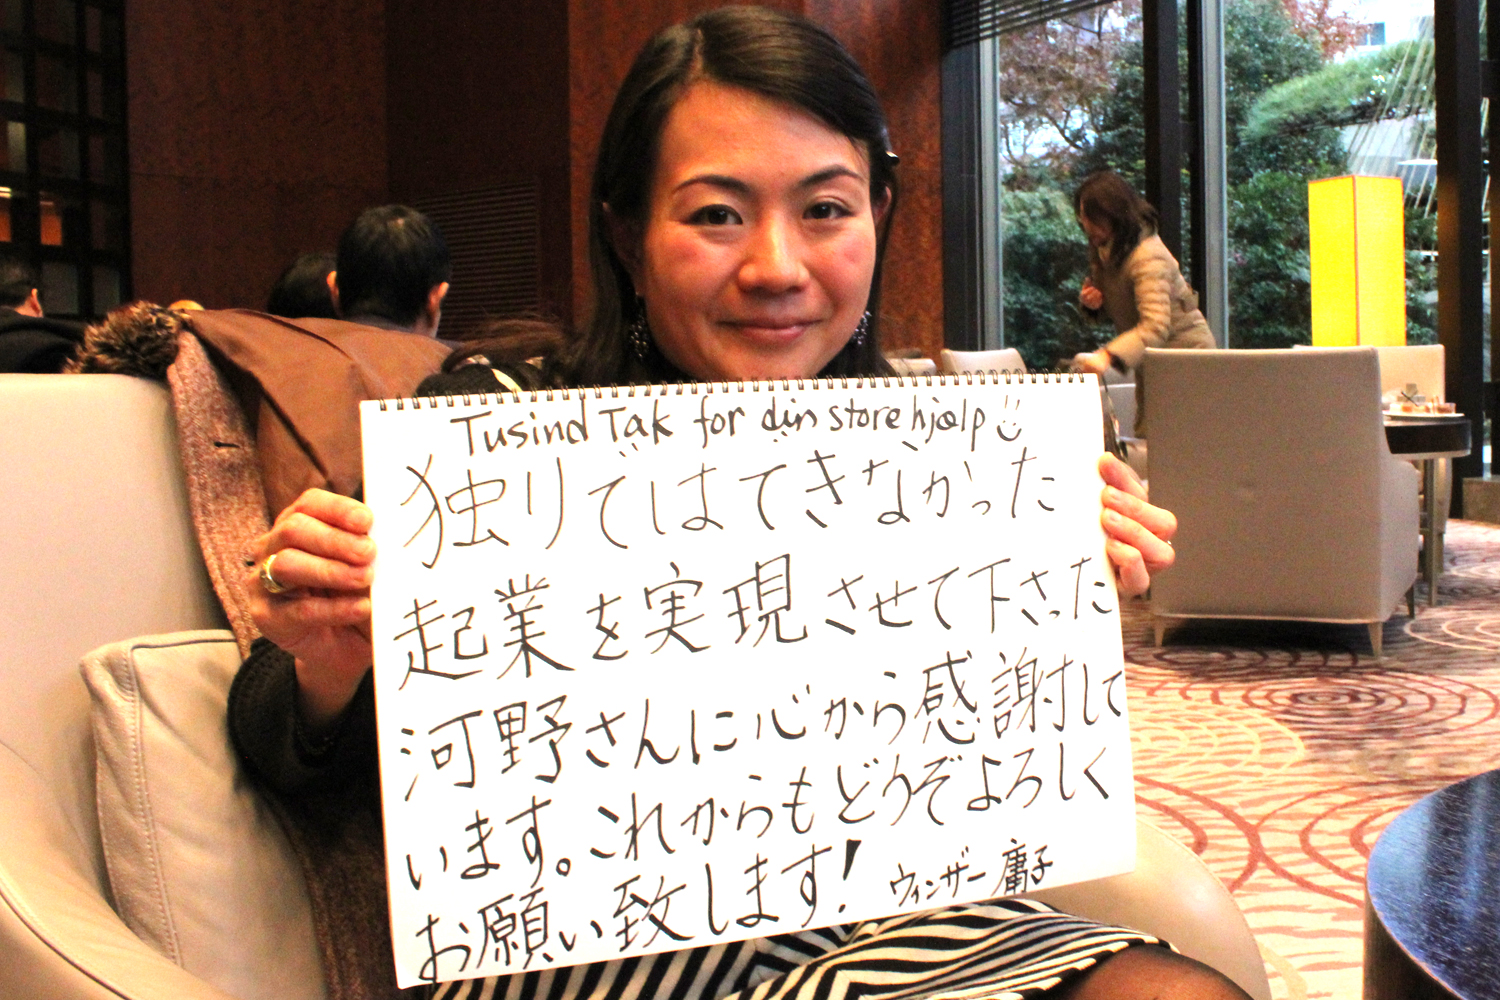 Tusind Tak for din store hjælp
独りではてきなかった
起業を実現させて下さった
河野さんに心から感謝して
います。これからもどうぞよろしく
お願い致します!
ウィンザー庸子